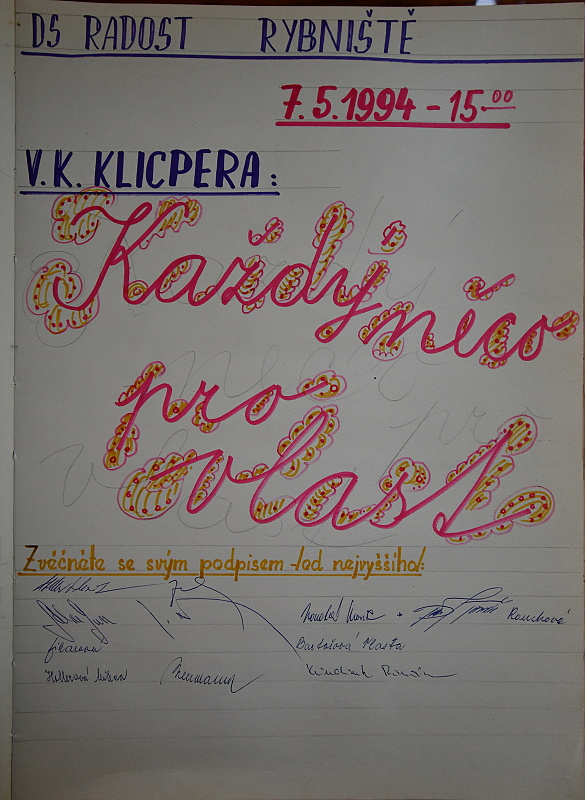 DS RADOST RYBNIŠTĚ
7.5.1994 - 15 00
V. K. KLICPERA:
Každý něco
pro
vlast
Zvěčněte se svým podpisem -/od nejvyššího/:
Rouchová
Bartošová Marta
Hollerová Milena Neumannová